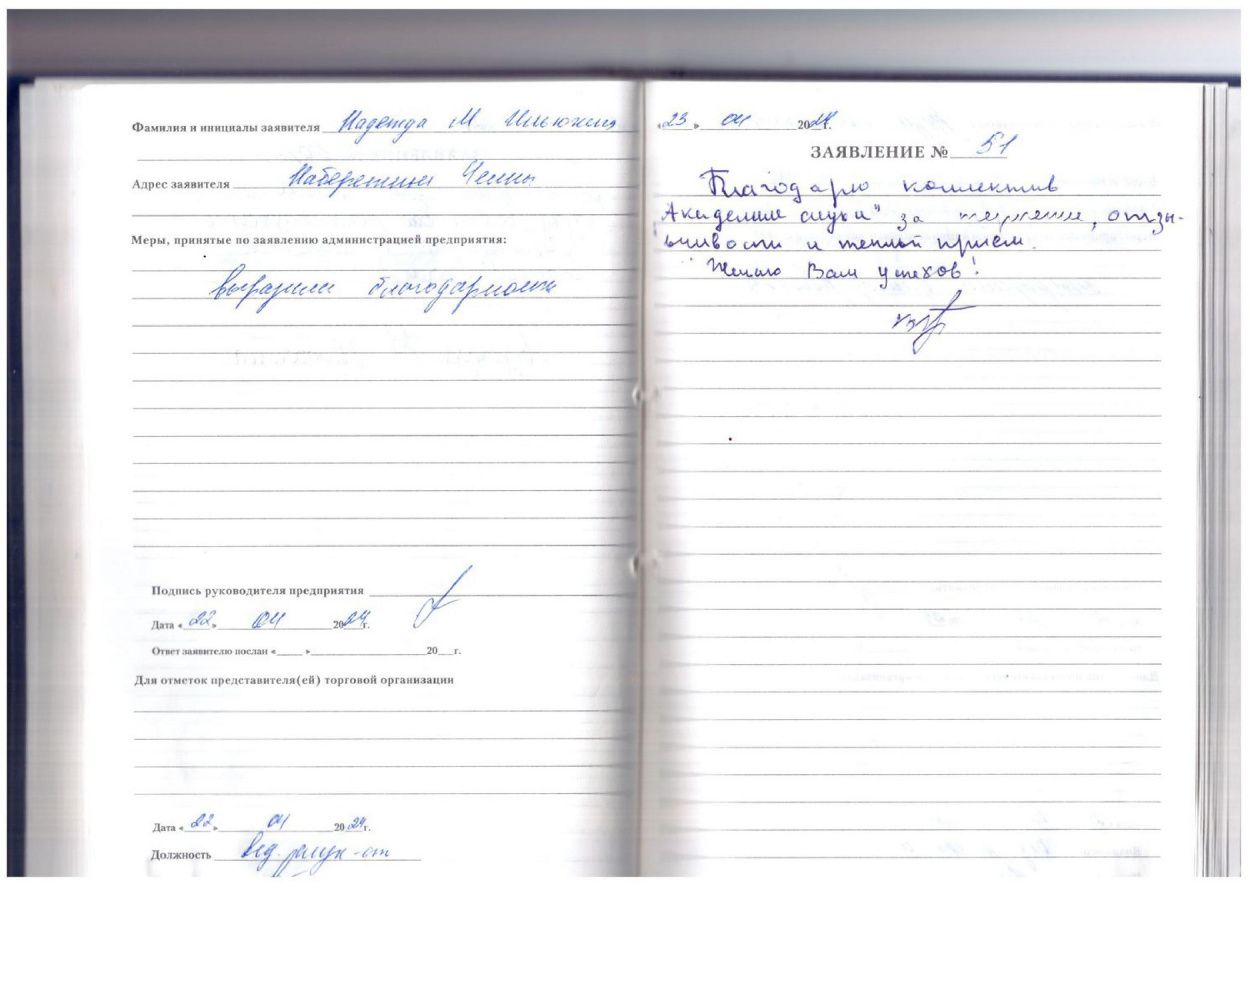 Фамилия и инициалы заявителя Надежда М Ильюхина
Адрес заявителя Набережные Челны
Меры, принятые по заявлению администрацией предприятия:
выразили благодарность
Подпись руководителя предприятия
Дата «22» 04 2024г.
Ответ заявителю послан «____ »____ 20___г.
Для отметок представителя(ей) торговой организации
Дата «22» 04 2024г.
Должность вед.
«23» 04 2024г.
ЗАЯВЛЕНИЕ № 51
Благодарю коллектив
Академии слуха" за терпение, отзы-
вчивости и теплый приём.
Желаю Вам успехов!